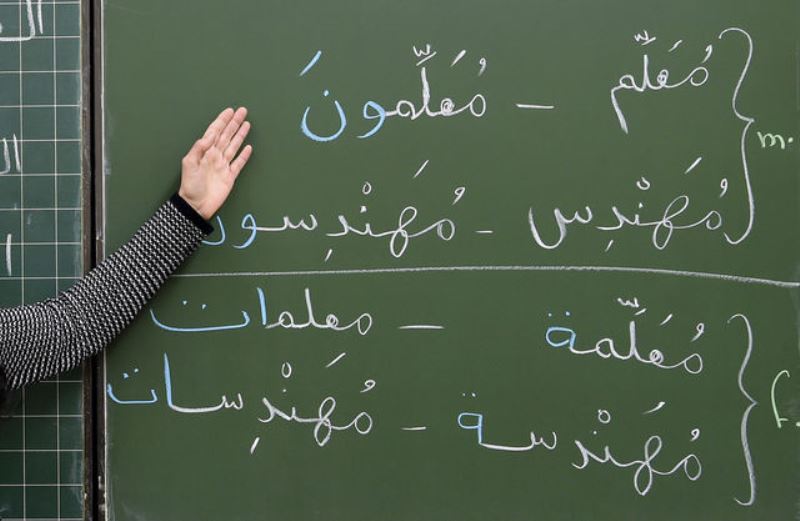 مُعَلِّم – مُعَلِّمونَ
m.
مُهَنْدِس - مُهَنْدِسون
مُعَلِّمة – معلمات
f.
مُهَنْدسة - مُهَنْدِسات